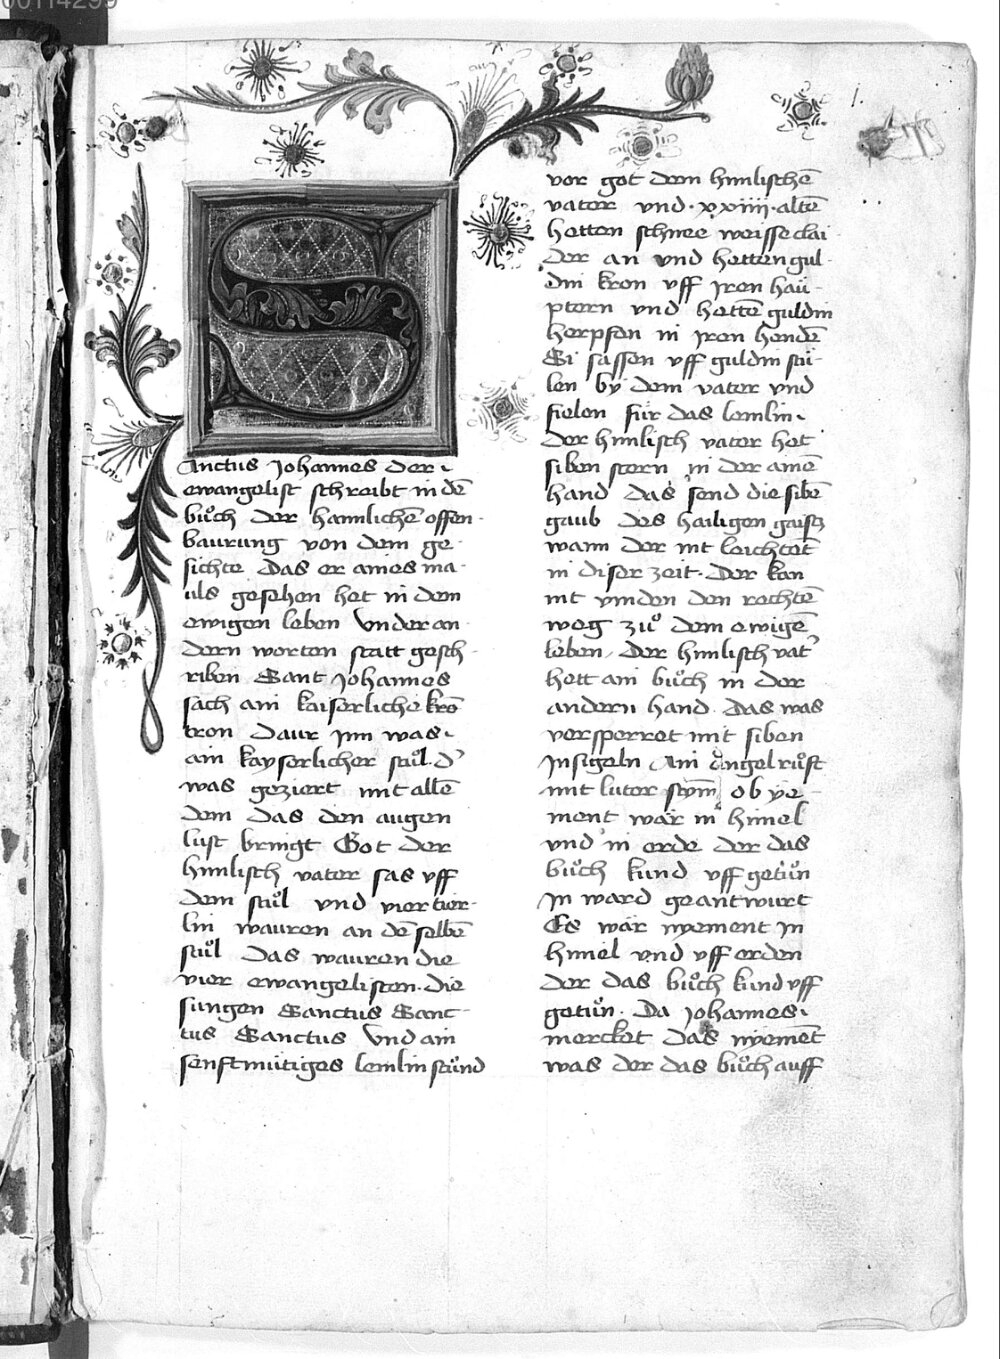 00114299
1.
Sanctus Johannes der
ewangelist schreibt in dē
buͦch der haimlichē offen
baurung von dem ge
sichte Das er aines ma
als gesehen het in dem
ewigen leben Vnder an
dern worten statt gesch
riben Sant Johannes
sach ain kaiserliche krō
tron Daur Inn was
ain kayserlicher stuͦl. d᾽
was geziert mit allē
dem das den augen
lust bringt Got der
himlisch vater sas vff
dem stuͦl vnd vier tier
lin wauren an dē selbē
stuͦl Das wauren die
vier ewangelisten. die
sungen Sanctus Sanc
tus Sanctus Vnd ain
senftmuͤtiges lemlin stuͦnd
vor got dem himlischē
vater vnd · xxiiii · altē
hetten schnee weisse clai
der an vnd hetten gul
din kron vff Iren haü
ptern vnd hettē guldin
herpfen in Iren hendē
Si sassen vff guldin stü
len by dem vater vnd
fielen für das lemlin
Der himlisch vater het
siben stern in der ainē
hand das send die sibē
gaub des hailigen gaists
wann der nit leichtet
in diser zeit. Der kan
nit vinden den rechtē
weg zuͦ dem ewigē
leben Der himlisch vat᾽
hett ain buͦch in der
andern hand. Das was
versperret mit siben
Insigeln Ain Engel ruͦft
mit luter stym̄ ob ye
ment wär in himel
vnd in erde der das
buͦch kund vff getuͦn
Im ward geantwurt
Es wär nyement In
himel vnd vff erden
der das buͦch kund vff
getuͦn. Da Johannes
mercket das nyemēt
was der das buͦch auff